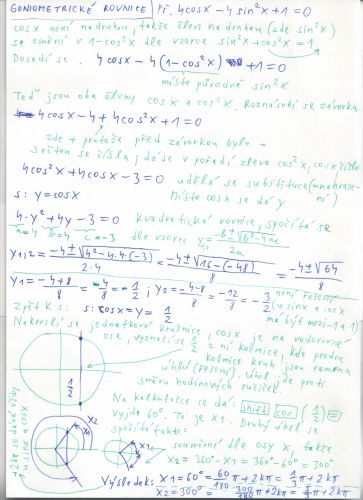 GONIOMETRICKÉ ROVNICE př. 4cosx-4sin²x+1=0
cosx není na druhou, takže člen na druhou (zde sin²x)
se změní v 1-cos²x dle vzorce sin²x+cos²x=1
Dosadí se. 4cosx-4(1-cos²x)+1=0
místo původně sin²x
Teď jsou oba členy cosx a cos²x. Roznásobí se závorka
4cosx-4+4cos²x+1=0
zde + protože před závorkou bylo -
sečtou se čísla, dá se v pořadí zleva cos²x, cosx, číslo
4cos²x+4cosx-3=0 udělá se substituce (= nahrazení)
s: y=cosx Místo cosx se dá y
4·y²+4y-3=0 kvadratická rovnice, spočítá se
a=4 b=4 c=-3 dle vzorce y1;2=-b±√b²-4ac/2a
y1;2=-4±√4²-4·4·(-3)/2·4=-4±√16-(-48)/8=-4±√64/8
y1=-4+8/8=4/8=1/2; y2=-4-8/8=-12/8=-3/2 není řešení
(u sinx a cosx má být mezi -1 a 1)
Zpět k s: s: cosx=y=1/2
Nakreslí se jednotková kružnice, cosx je na vodorovné
ose, vyznačí se 1/2 z ní kolmici, kde protne
kolmice kruh, jsou ramena
úhlů (řešení). Úhel jde proti
směru hodinových ručiček.
Na kalkulačce se dá: shift cos (1/2) =
Vyjde 60°. To je x1. Druhý úhel se
spočítá takto:
souměrné dle osy x, takže
x2=360°-x1=360°-60°=300°
+2kπ se dává vždy u sinx a cosx
1/2
x2
x1
Výsledek: x1=60°=60/180π+2kπ=1/3π+2kπ
x2=300°=300/180π+2kπ=5/3π+2kπ